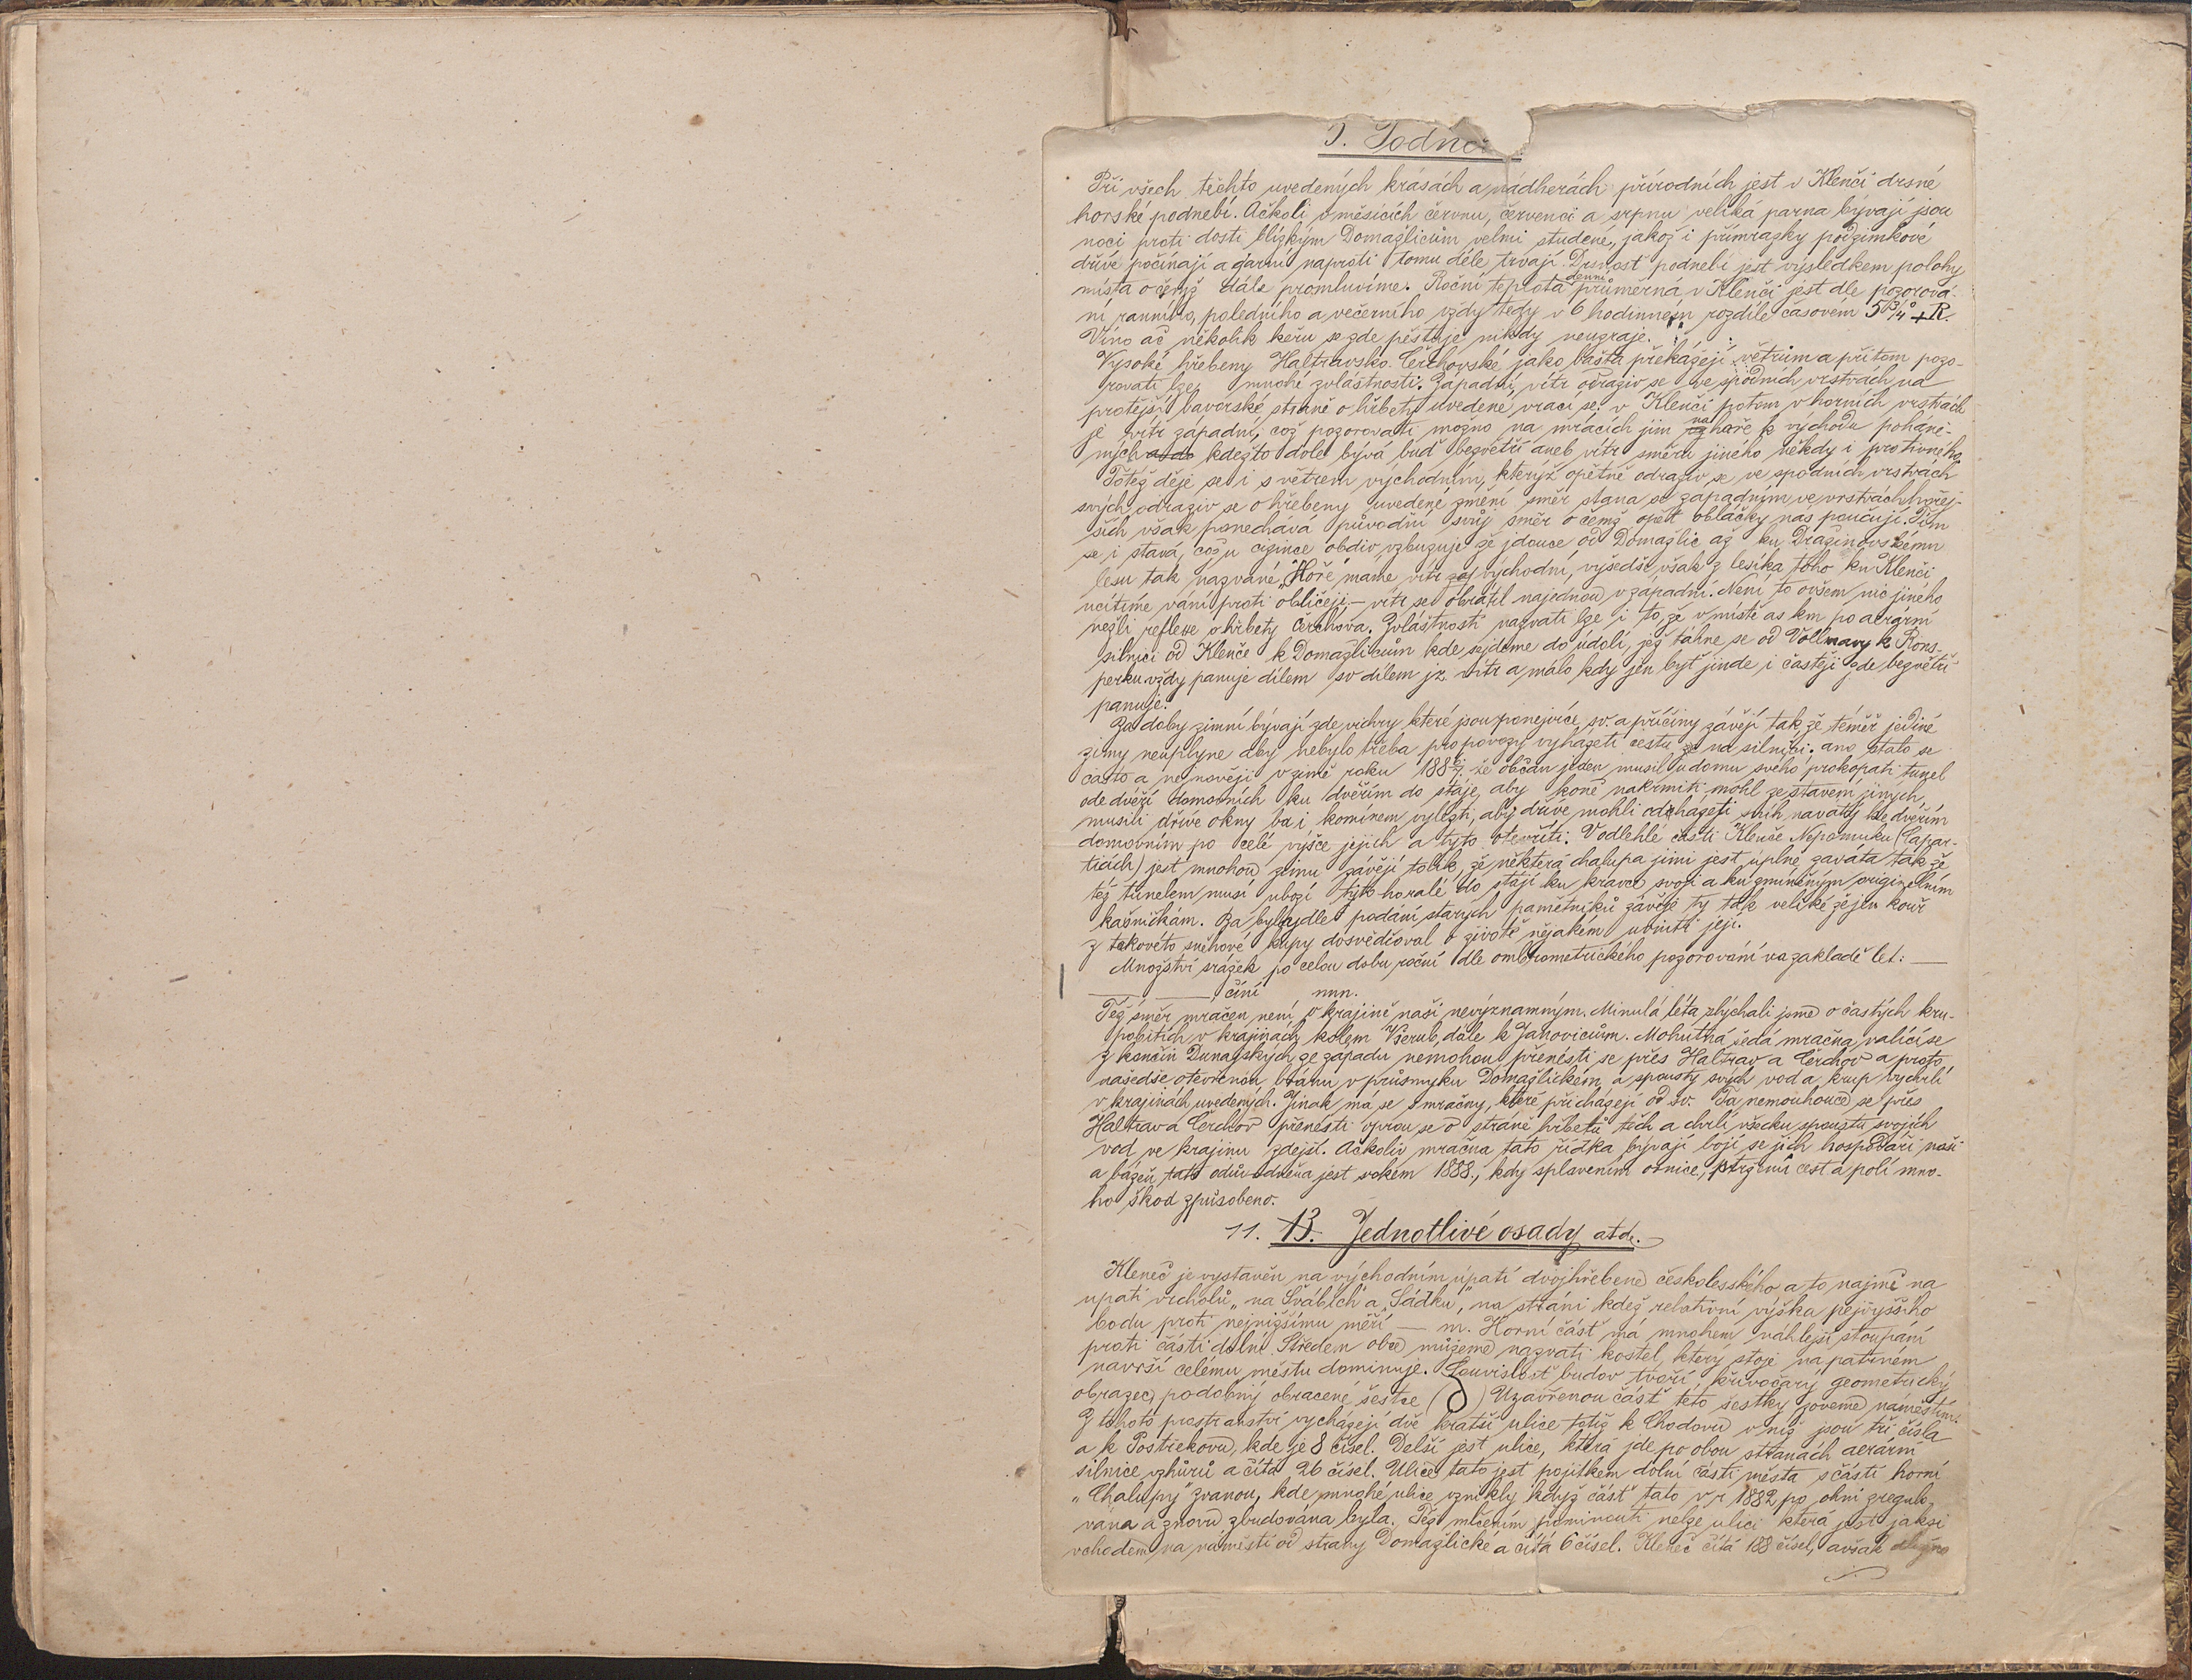 Při všech těchto uvedených krásách a nádherách přírodních jest v Klenčí drsné
horské podnebí. Ačkoli v měsících červnu, červenci a srpnu veliká parna bývají jsou
noci proti dosti blízkým Domažlicům velmi studené, jakož i přímrazky podzimkové
dříve počínají a jarní naproti tomu déle trvají. Drsnosť podnebí jest výsledkem polohy
místa o čemž dále promluvíme. Roční teplota denní průměrná v Klenčí jest dle pozorová-
ní ranního, poledního a večerního vždy tedy v 6 hodinném rozdíle časovém 5 3/4° + R.
Víno ač několik keřu se zde pěstuje nikdy neuzraje.
Vysoké hřebeny Haltravsko-Čerchovské jako bašta překážejí větrům a přitom pozo-
rovati lze mnohé zvláštnosti. Západní vítr odraziv se ve spodních vrstvách na
protější bavorské straně o hřbety uvedené vrací se. v Klenčí potom v horních vrstvách
je vítr západní, což pozorovati možno na mracích jim na hoře k východu poháně-
ných kdežto dole bývá buď bezvětří aneb vítr směru jiného někdy i protivného.
Totéž děje se i s větrem východním, kterýž opětně odraziv se ve spodních vrstvách
svých odraziv se o hřebeny uvedené změní směr stana se západním ve vrstvách hořej-
ších však ponechává původní svůj směr o čemž opět obláčky nás poučují. Tím
se i stává, což u cizince obdiv vzbuzuje že jdouce od Domažlic až ku Draženovskému
lesu tak nazvané „Hoře" máme vítr východní, vyšedše však z lesíka toho ku Klenčí
ucítíme vání proti obličeji – vítr se obrátil najednou v západní. Není to ovšem nic jiného
nežli reflexe o hřbety Čerchova. Zvláštností nazvati lze i to, že v místě as km po aerární
silnici od Klenče k Domažlicům kde sejdeme do údolí, jež táhne se od Vollmavy k Rons-
perku vždy panuje dílem sv dílem jz vítr a málo kdy jen byť jinde i častěji zde bezvětří
panuje.
Za doby zimní bývají zde vichry které jsou ponejvíce sv. a příčiny závějí tak, že téměř jediné
zimy neuplyne aby nebylo třeba pro povozy vyházeti cestu na silnici. ano stalo se
často a nejnověji v zimě roku 1886/7. že občan jeden musil u domu svého prokopati tunel
ode dvéří domovních ku dvéřím do stáje, aby koně nakrmiti mohl ze stavení jiných
musili dříve okny ba i komínem vylézti, aby dříve mohli odházeti sníh navátý ke dvéřím
domovním po celé výšce jejich a tyto otevříti. V odlehlé části Klenče Nepomuku (Capar-
ticích) jest mnohou zimu závějí tolik, že některá chalupa jimi jest úplně zaváta tak že
též tunelem musí ubozí tyto horalé do stájí ku krávě svoji a ku zmíněným originelním
kašničkám. Za byly dle podání starých pamětníků závěje ty tak veliké že jen kouř
z takovéto sněhové kupy dosvědčoval o životě nějakém uvnitř její.
Množství srážek po celou dobu roční dle ombrometrického pozorování na zakladě let: —
— — činí mm.
Též směr mračen není v krajině naší nevýznamným. Minulá léta slýchali jsme o častých kru-
pobitích v krajinách kolem Všerub, dále k Janovicům. Mohutná šedá mračna, valící se
z končin Dunajských ze západu nemohou přenésti se přes Haltrav a Čerchov a proto
našedše otevřenou bránu v průsmyku Domažlickém a spousty svých vod a krup vychrlí
v krajinách uvedených. Jinak má se s mračny, které přicházejí od sv. Ta nemouhouce se přes
Haltrav a Čerchov přenésti oprou se o stráně hřbetů těch a chrlí všecku spoustu svojích
vod ve krajinu zdejší. Ačkoliv mračna tato řídka bývají bojí se jich hospodáři naši
a bázeň tato odůvodněna jest rokem 1888., kdy splavením ornice, stržení cest a polí mno-
ho škod způsobeno.
11. B. Jednotlivé osady atd.
Kleneč je vystavěn na východním úpatí dvojhřebene českolesského a to najmě na
upatí vrcholů „na Švábích" a „Sádku", na stráni kdež relativní výška nejvyššího
bodu proti nejnižšímu měří — m. Horní část má mnohem náhlejší stoupání
proti části dolní. Středem obce můžeme nazvati kostel, který stoje na patrném
návrší celému městu dominuje. Souvislosť budov tvoří křivočarý geometrický
obrazec, podobný obracené šestce ( ) Uzavřenou část této šestky zoveme náměstím.
Z tohoto prostranství vycházejí dvě kratší ulice totiž k Chodovu v niž jsou tři čísla
a k Postřekovu, kde je 8 čísel. Delší jest ulice, která jde po obou stranách aerární
silnice vzhůrů a čítá 26 čísel. Ulice tato jest pojítkem dolní části města s částí horní
„Chalupy" zvanou, kde mnohé ulice vznikly když část tato v r 1882 po ohni zregulo-
vána a znovu zbudována byla. Též mlčením pominouti nelze ulici která jest jaksi
vchodem na náměstí od strany Domažlické a čítá 6 čísel. Kleneč čítá 188 čísel, avšak